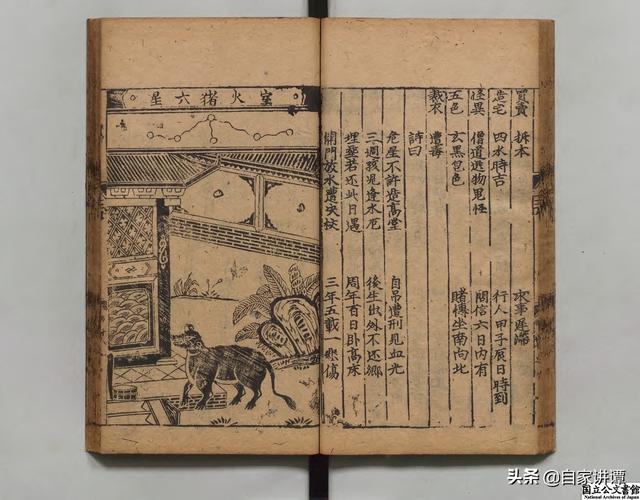 買賣 折本 求事遲滯
造宅 四水時吉 行人甲子辰日時到
怪異 僧道逃物見怪 問信六日內有
五色 玄黑皂色 賭博坐南向北
裁衣 遭毒
詩曰
危星不許造高堂 自吊遭刑見血光
三週孩兒逢水厄 後生出外不还鄉
埋葬若还此日遇 周年百日卧高床
開門放水遭災杖 三年五載一悲傷
室火猪六星
头条 @自家讲谭
国立公文書館
National Archives of Japan